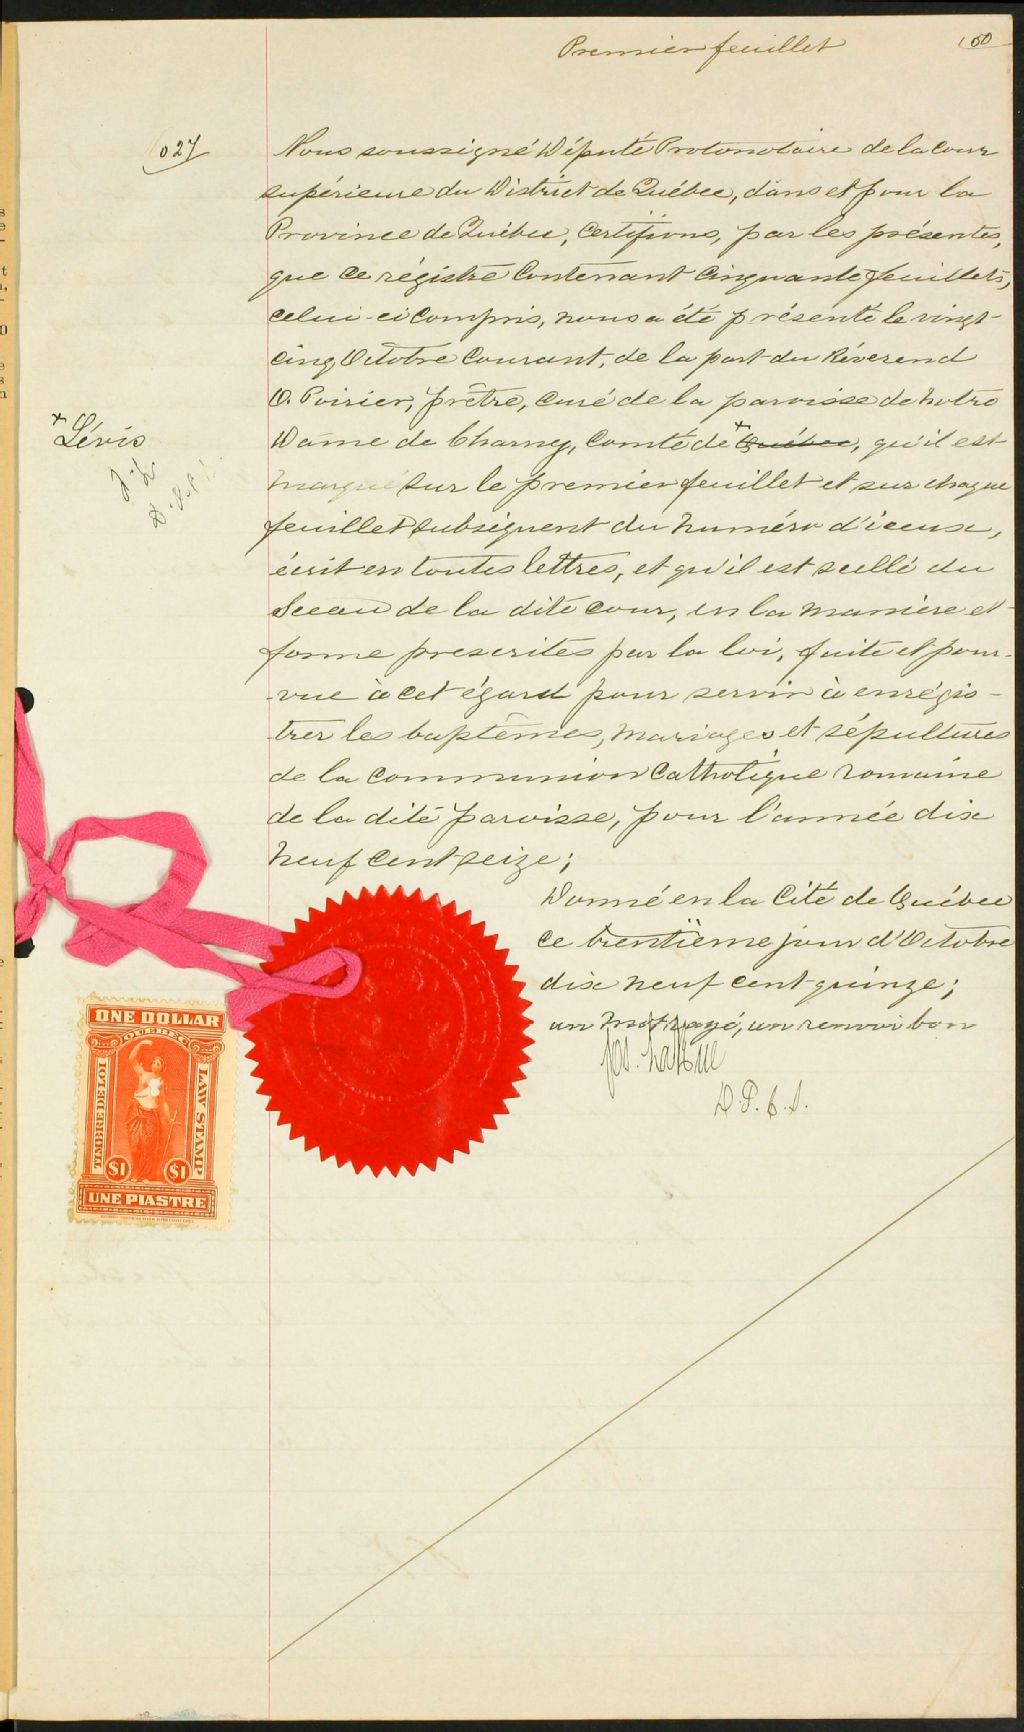 Premier feuillet
50
027
Nous soussigné Député Protonotaire de la Cour
supérieure du District de Québec, dans et pour la
Province de Québec, Certifions, par les présentes,
que ce régistre Contenant Cinquante feuillets,
celui-ci Compris, nous a été présenté le vingt-
cinq Octobre Courant, de la part du Révérend
O. Poirier, prêtre, curé de la paroisse de Notre
Dame de Charny, Comté de + Québec, qu'il est
+ Lévis
J. L.
D.P.C.S.
marqué sur le premier feuillet et sur chaque
feuillet subséquent du numéro d'iceux,
écrit en toutes lettres, et qu'il est scellé du
Sceau de la dite Cour, en la manière et
forme prescrites par la loi, faite et pour-
-vue à cet égard pour servir à enrégis-
-trer les baptêmes, mariages et sépultures
de la Communion Catholique romaine
de la dite paroisse, pour l'année dix
neuf Cent seize;
Donné en la Cité de Québec
ce trentième jour d'Octobre
dix neuf cent quinze;
un mot rayé, un renvoi bon
Jos. LaRue
D.P.C.S.
ONE DOLLAR
QUEBEC
TIMBRE DE LOI
LAW STAMP
$1 $1
UNE PIASTRE